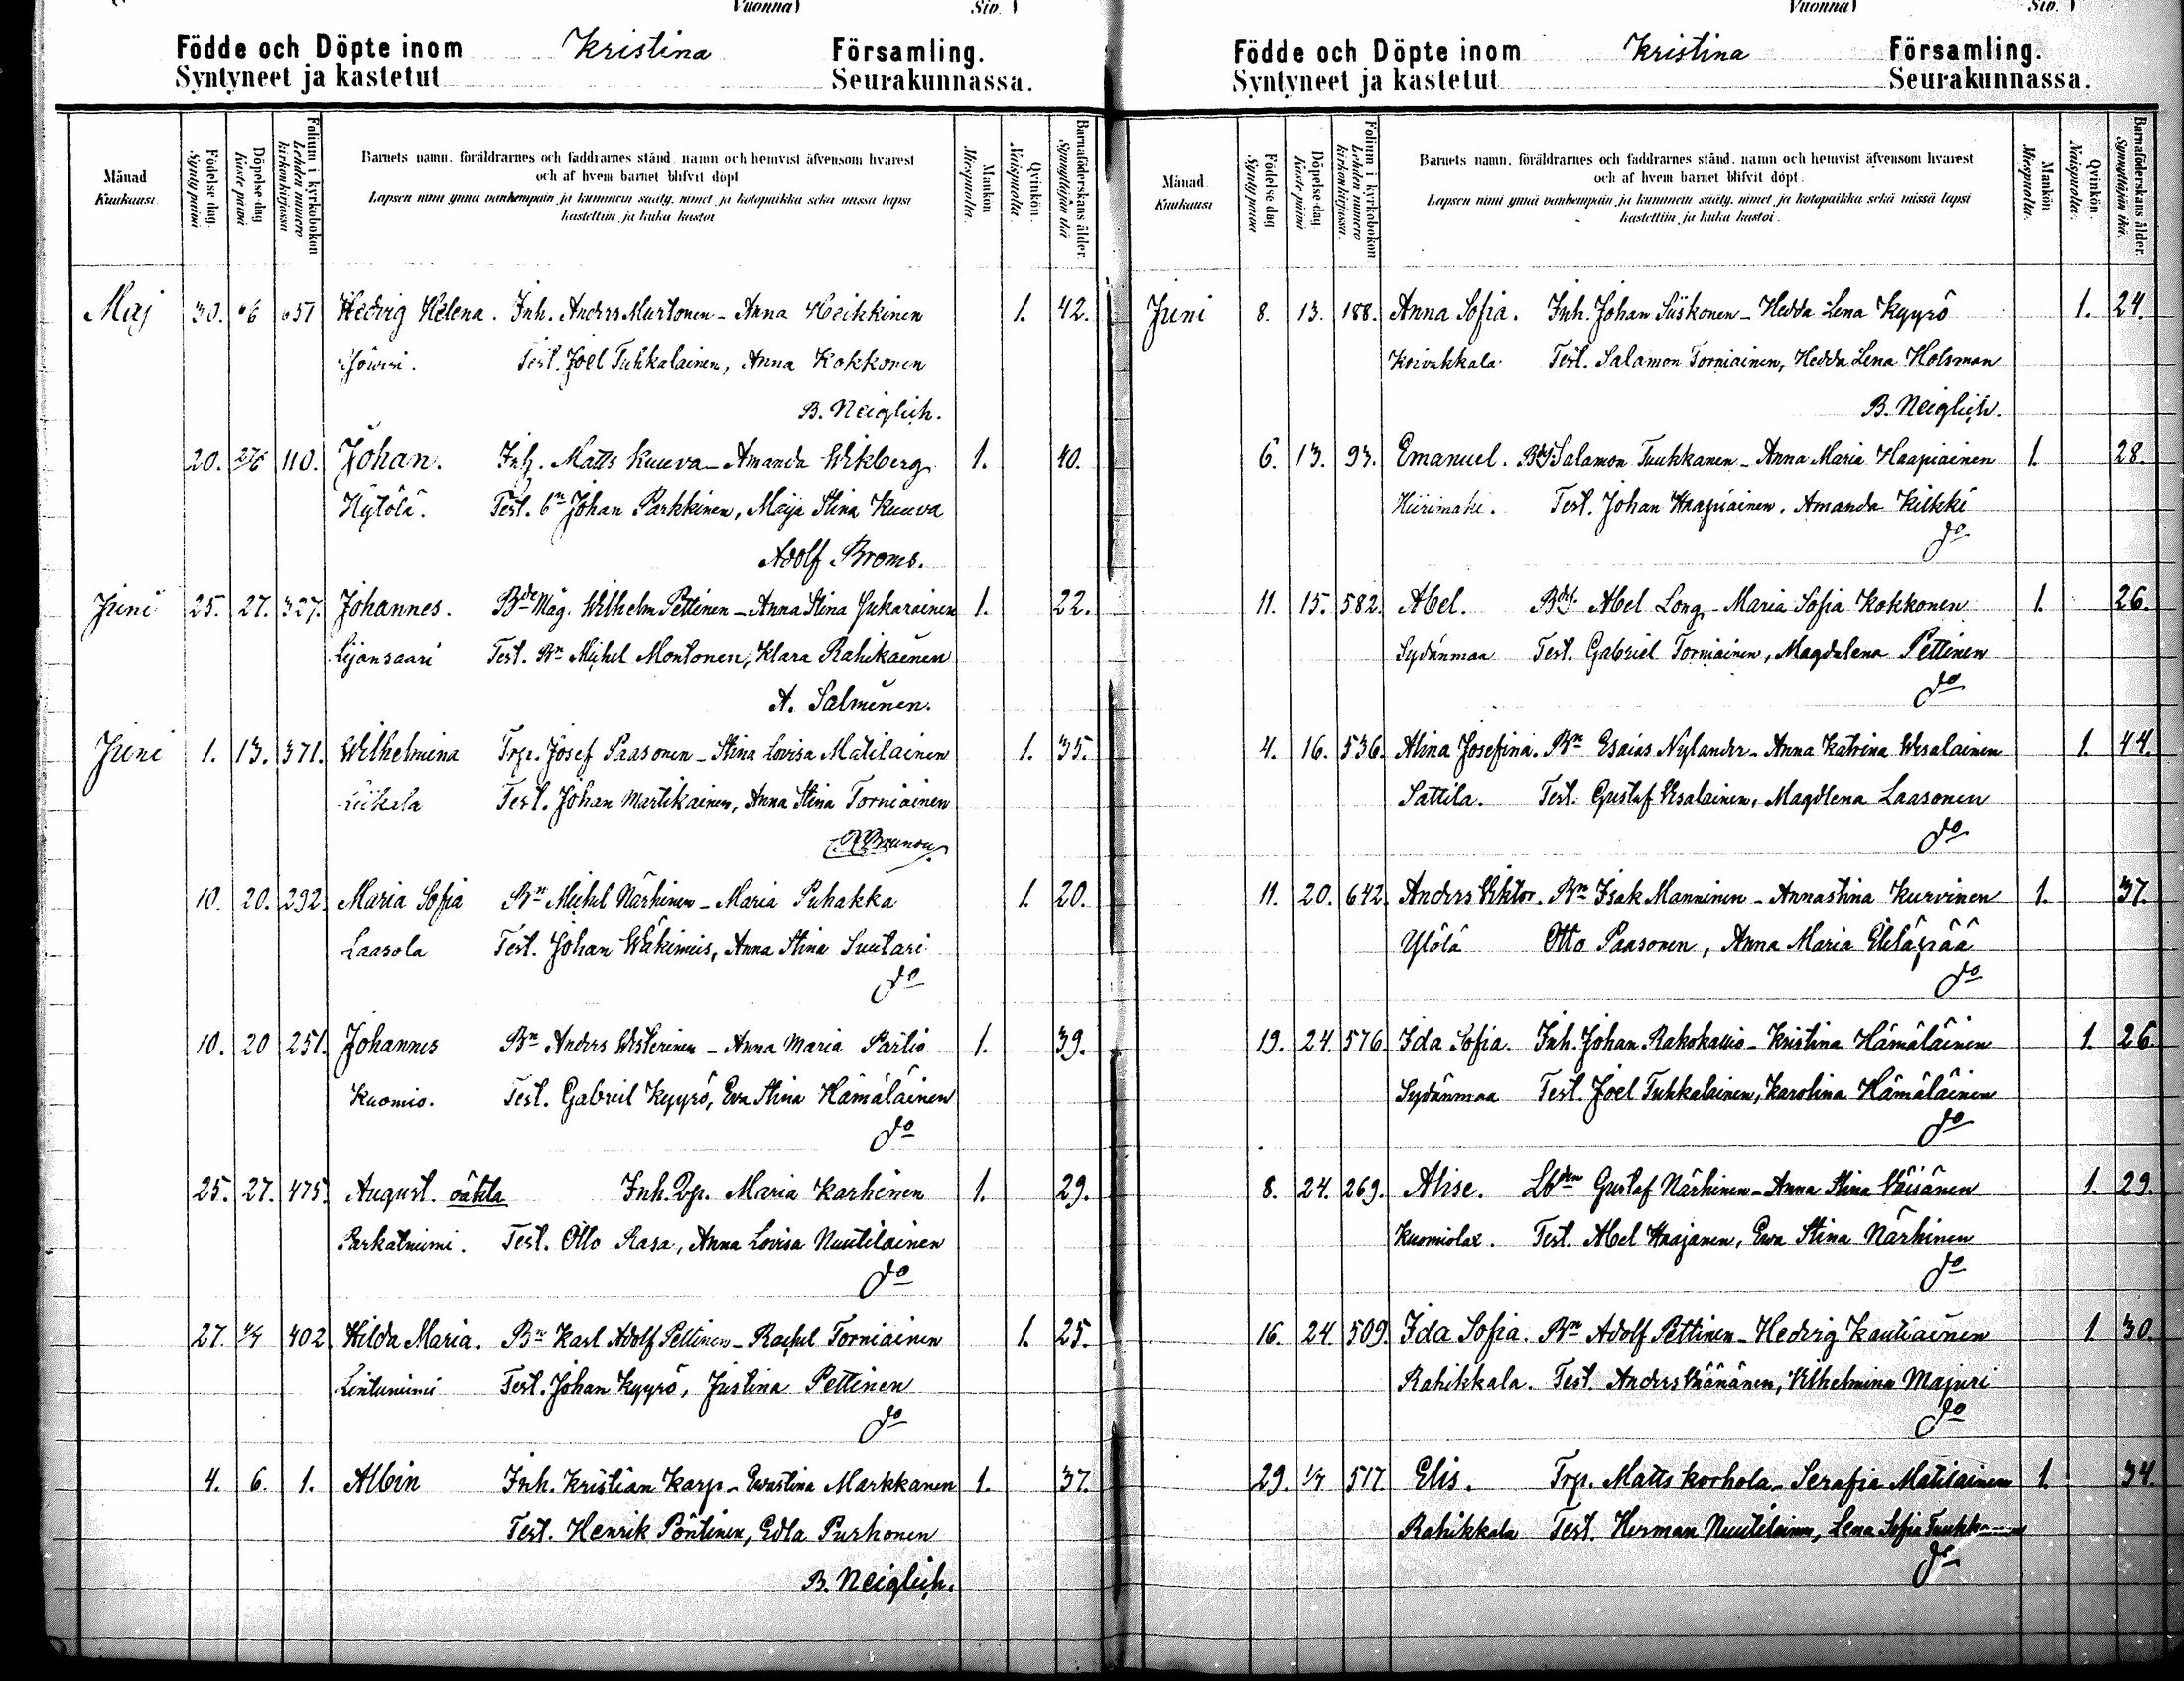 Vuonna) Siv. )
Födde och Döpte inom Kristina Församling.
Syntyneet ja kastetut Seurakunnassa.
Månad Kuukausi
Födelse dag. Synty päivä
Döpelse dag Kaste päivä
Folium i kyrkoboken Lehden numero kirkonkirjassa
Barnets namn. föräldrarnes och faddrarnes stånd. namn och hemvist äfvensom hvarest
och af hvem barnet blifvit döpt
Lapsen nimi ynnä vanhempain ja kummein sääty. nimet ja kotopaikka sekä missä lapsi
kastettiin ja kuka kastoi
Mankön Miespuolia.
Qvinkön. Naispuolia.
Barnaföderskans ålder. Synnyttäjän ikä
Maj 30. 6/6 651 Hedvig Helena. Inh. Anders Murtonen - Anna Heikkinen 1. 42.
Test. Joel Tuhkalainen, Anna Kokkonen
B. Neiglich.
20. 27/6 110. Johan. Inh. Matts Kuuva - Amanda Wikberg 1. 40.
Hytölä. Test. Johan Parkkinen, Maija Stina Kuuva
Adolf Broms.
Juni 25. 27. 327. Johannes. Bde Måg. Wilhelm Pettinen - Anna Stina Jukarainen 1. 22.
Lijansaari Test. Bn Michel Montonen, Klara Rahikainen
A. Salminen.
Juni 1. 13. 371. Wilhelmina Trp. Josef Paasonen - Stina Lovisa Matilainen 1. 35.
Test. Johan Martikainen, Anna Stina Torniainen
10. 20. 292. Maria Sofia Bn Michel Närhinen - Maria Puhakka 1. 20.
Laasola Test. Johan Wäkimies, Anna Stina Suutari
do
10. 20 251. Johannes Bn Anders Westerinen - Anna Maria Partio 1. 39.
Kuomio. Test. Gabriel Kyyrö, Eva Stina Hämäläinen
do
25. 27. 475. August. oäkta Inh. Maria Karhinen 1. 29.
Parkatniemi. Test. Otto Rasa, Anna Lovisa Nuutilainen
do
27. 4/7 402 Hilda Maria. Bn Karl Adolf Pettinen - Rachel Torniainen 1. 25.
Lintuniemi Test. Johan Kyyrö, Justina Pettinen
do
4. 6. 1. Albin Inh. Kristian Karp - Evastina Markkanen 1. 37.
Test. Henrik Pöntinen, Edla Purhonen
B. Neiglich.
Vuonna) Siv. )
Födde och Döpte inom Kristina Församling.
Syntyneet ja kastetut Seurakunnassa.
Månad. Kuukausi
Födelse dag Synty päivä
Döpelse dag Kaste päivä
Folium i kyrkoboken Lehden numero kirkonkirjassa.
Barnets namn. föräldrarnes och faddrarnes stånd. namn och hemvist äfvensom hvarest
och af hvem barnet blifvit döpt.
Lapsen nimi ynnä vanhempain ja kummein sääty. nimet ja kotopaikka sekä missä lapsi
kastettiin ja kuka kastoi.
Mankön Miespuolia.
Qvinkön. Naispuolia.
Barnaföderskans ålder. Synnyttäjän ikä.
Juni 8. 13. 188. Anna Sofia. Inh. Johan Siiskonen - Hedda Lena Kyyrö 1. 24.
Koivakkala Test. Salamon Torniainen, Hedda Lena Holsman
B. Neiglich.
6. 13. 93. Emanuel. Salamon Tuukkanen - Anna Maria Haapiainen 1. 28.
Hiirimäki. Test. Johan Haapiainen. Amanda Kilkki
do
11. 15. 582. Abel. Abel Long - Maria Sofia Kokkonen 1. 26.
Sydänmaa Test. Gabriel Torniainen, Magdalena Pettinen
do
4. 16. 536. Alina Josefina. Bn Esaias Nylander - Anna Katrina Wesalainen 1. 44.
Sattila. Test. Gustaf Wesalainen, Magdlena Laasonen
do
11. 20. 642. Anders Viktor. Bn Isak Manninen - Annastina Kurvinen 1. 37.
Ylölä Otto Paasonen, Anna Maria Eteläpää
do
19. 24. 576. Ida Sofia. Inh. Johan Rakokallio - Kristina Hämäläinen 1. 26
Sydänmaa Test. Joel Tuhkalainen, Karolina Hämäläinen
do
8. 24. 269. Alise. Gustaf Närhinen - Anna Stina Väisänen 1. 29.
Kuomiolax. Test. Abel Haajanen, Eva Stina Närhinen
do
16. 24 509. Ida Sofia. Bn Adolf Pettinen - Hedvig Kautiainen 1 30.
Rahikkala. Test. Anders Väänänen, Vilhelmina Majuri
do
29. 1/7 517. Elis. Trp. Matts Korhola - Serafia Matilainen 1. 34.
Rahikkala Test. Herman Nuutilainen, Lena Sofia Tuukkanen
do